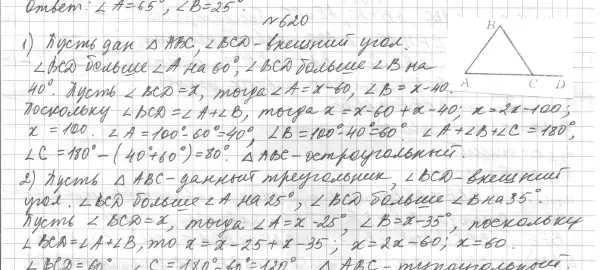 Ответ: ∠A=65°, ∠B=25°.
№620
1) Пусть дан △ABC, ∠BCD-внешний угол.
∠BCD больше ∠A на 60°, ∠BCD больше ∠B на
40°. Пусть ∠BCD=x, тогда ∠A=x-60, ∠B=x-40.
Поскольку ∠BCD=∠A+∠B, тогда x=x-60+x-40; x=2x-100;
x=100. ∠A=100°-60°=40°, ∠B=100°-40°=60° ∠A+∠B+∠C=180°,
∠C=180°-(40°+60°)=80°. △ABC-остроугольный.
2) Пусть △ABC-данный треугольник, ∠BCD-внешний
угол. ∠BCD больше ∠A на 25°, ∠BCD больше ∠B на 35°.
Пусть ∠BCD=x, тогда ∠A=x-25°, ∠B=x-35°, поскольку
∠BCD=∠A+∠B, то x=x-25+x-35; x=2x-60; x=60.
∠BCD=60° ∠C=180°-60°=120° △ABC-тупоугольный
B
A C D